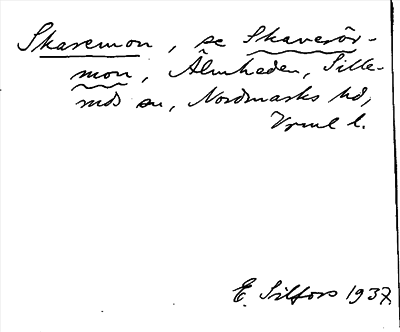 Skaremon, se Skaverör-
mon, Älmheden, Sille-
rud sn, Nordmarks hd,
Vrml l.
E. Silfors 1937.